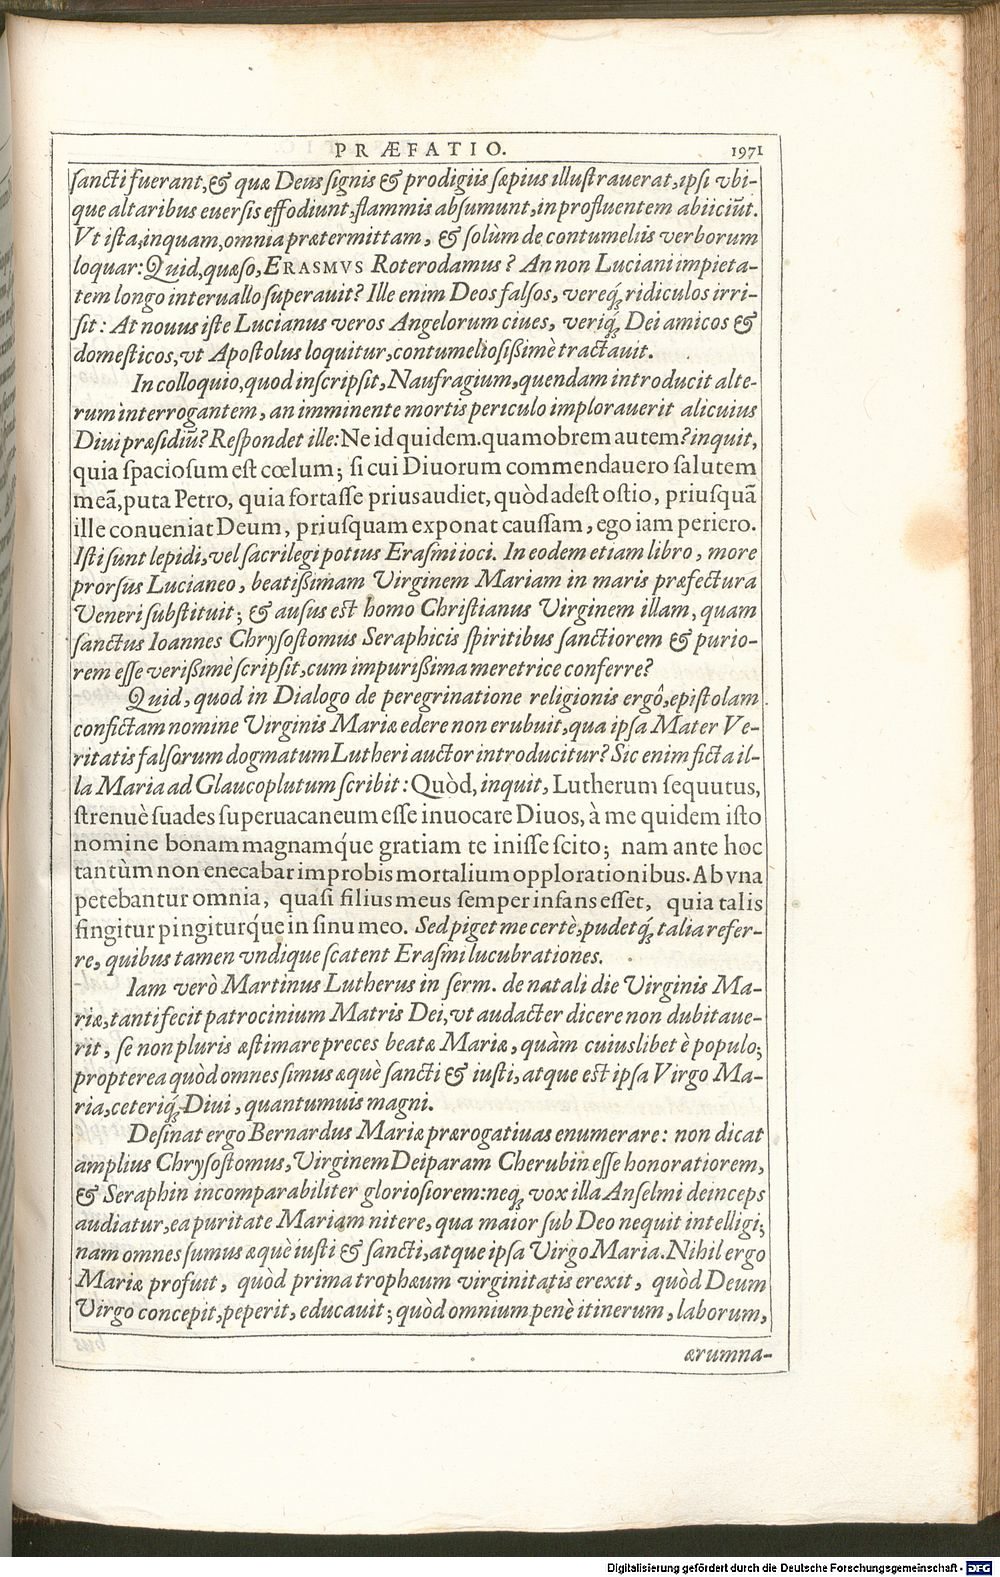 PRÆFATIO. 1971
sancti fuerant, & quæ Deus signis & prodigiis sæpius illustrauerat, ipsi vbi-
que altaribus euersis effodiunt, flammis absumunt, in profluentem abiiciūt.
Vt ista, inquam, omnia prætermittam, & solùm de contumeliis verborum
loquar: Quid, quæso, ERASMVS Roterodamus? An non Luciani impieta-
tem longo interuallo superauit? Ille enim Deos falsos, vereq́; ridiculos irri-
sit: At nouus iste Lucianus veros Angelorum ciues, veriq́; Dei amicos &
domesticos, vt Apostolus loquitur, contumeliosißimè tractauit.
In colloquio, quod inscripsit, Naufragium, quendam introducit alte-
rum interrogantem, an imminente mortis periculo implorauerit alicuius
Diui præsidiū? Respondet ille: Ne id quidem. quamobrem autem? inquit,
quia spaciosum est cœlum; si cui Diuorum commendauero salutem
meā, puta Petro, quia fortasse prius audiet, quòd adest ostio, priusquā
ille conueniat Deum, priusquam exponat caussam, ego iam periero.
Isti sunt lepidi, vel sacrilegi potius Erasmi ioci. In eodem etiam libro, more
prorsus Lucianeo, beatißimam Virginem Mariam in maris præfectura
Veneri substituit; & ausus est homo Christianus Virginem illam, quam
sanctus Ioannes Chrysostomus Seraphicis spiritibus sanctiorem & purio-
rem esse verißimè scripsit, cum impurißima meretrice conferre?
Quid, quod in Dialogo de peregrinatione religionis ergô, epistolam
confictam nomine Virginis Mariæ edere non erubuit, qua ipsa Mater Ve-
ritatis falsorum dogmatum Lutheri auctor introducitur? Sic enim ficta il-
la Maria ad Glaucoplutum scribit: Quòd, inquit, Lutherum sequutus,
strenuè suades superuacaneum esse inuocare Diuos, à me quidem isto
nomine bonam magnamq́ue gratiam te inisse scito; nam ante hoc
tantùm non enecabar improbis mortalium opplorationibus. Ab vna
petebantur omnia, quasi filius meus semper infans esset, quia talis
fingitur pingiturq́ue in sinu meo. Sed piget me certè, pudetq́; talia refer-
re, quibus tamen vndique scatent Erasmi lucubrationes.
Iam verò Martinus Lutherus in serm. de natali die Virginis Ma-
riæ, tanti fecit patrocinium Matris Dei, vt audacter dicere non dubitaue-
rit, se non pluris æstimare preces beatæ Mariæ, quàm cuiuslibet è populo;
propterea quòd omnes simus æquè sancti & iusti, atque est ipsa Virgo Ma-
ria, ceteriq́; Diui, quantumuis magni.
Desinat ergo Bernardus Mariæ prærogatiuas enumerare: non dicat
amplius Chrysostomus, Virginem Deiparam Cherubin esse honoratiorem,
& Seraphin incomparabiliter gloriosiorem: neq́; vox illa Anselmi deinceps
audiatur, ea puritate Mariam nitere, qua maior sub Deo nequit intelligi;
nam omnes sumus æquè iusti & sancti, atque ipsa Virgo Maria. Nihil ergo
Mariæ profuit, quòd prima trophæum virginitatis erexit, quòd Deum
Virgo concepit, peperit, educauit; quòd omnium penè itinerum, laborum,
ærumna-
Digitalisierung gefördert durch die Deutsche Forschungsgemeinschaft - DFG